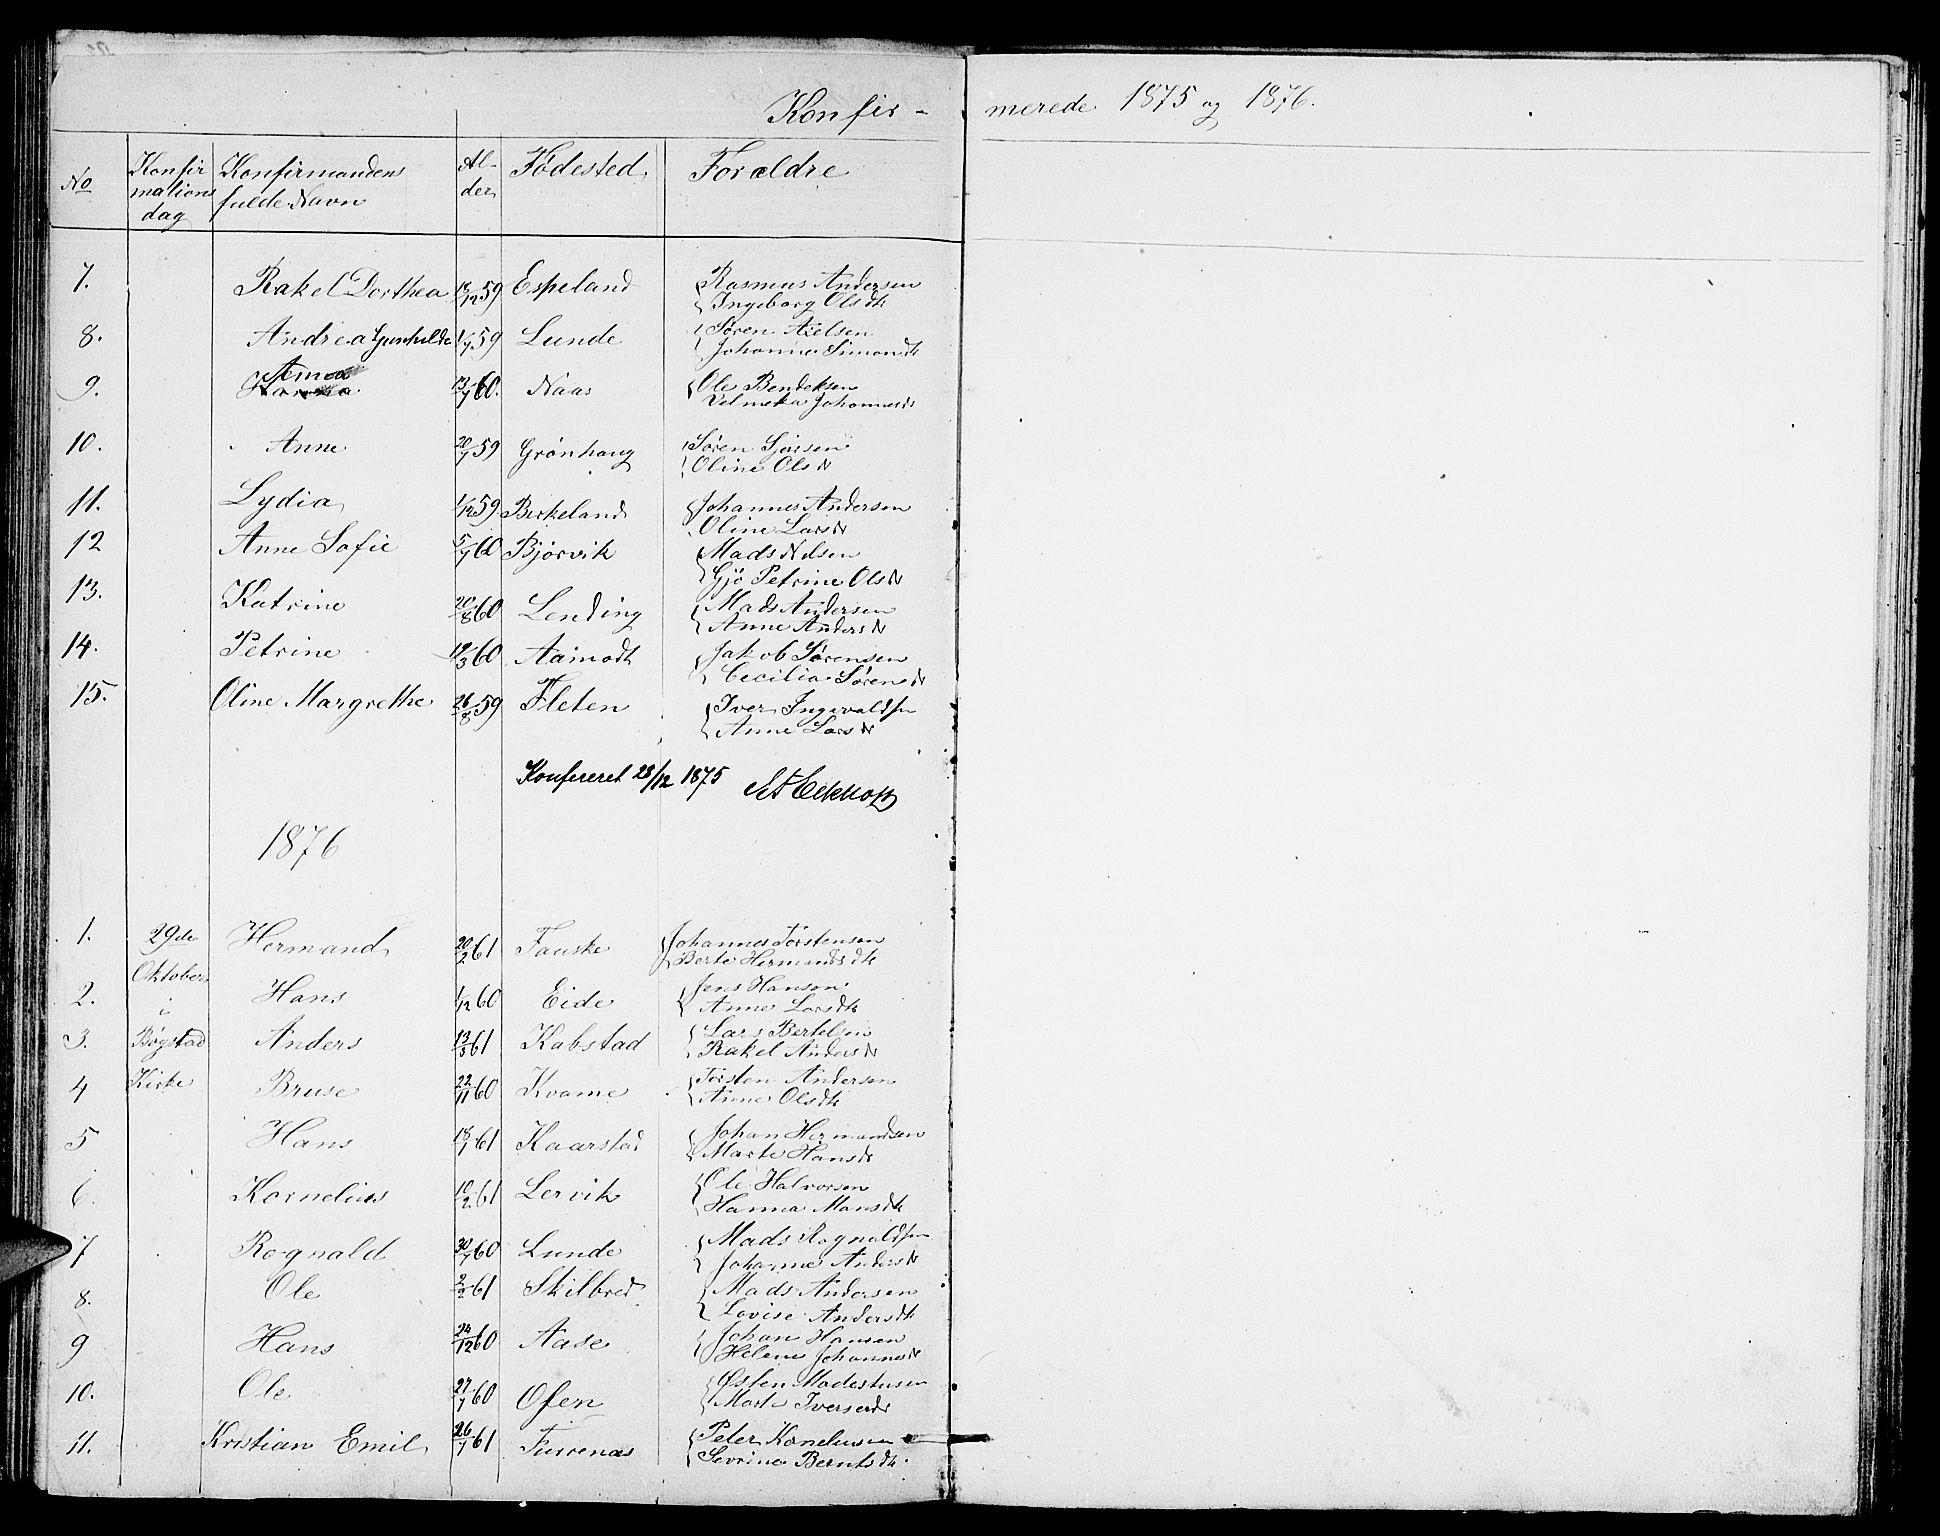 Konfir- merede 1875 og 1876.
No Konfirmations dag Konfirmandens fulde Navn Alder Fødested Forældre
7. Rakel Dorthea 18/12 59 Espeland Rasmus Andersen
Ingeborg Olsdtr
8. Andrea Gunhilde 1/7 59 Lunde Søren Axelsen
Johanne Simondtr
9. 13/7 60. Naas Ole Bendeksen
Velmeka Johannesdr
10. Anne 20/7 59 Grønhaug Søren
Oline Olsdr
11. Lydia 1/12 59 Birkeland Johannes Andersen
Oline Larsdr
12 Anne Sofie 5/7 60 Bjørvik Mads Nilsen
Gjö Petrine Olsdr
13. Katrine 20/8 60 Lending Mads Andersen
Anne Andersdr
14. Petrine 19/3 60 Aamodt Jakob Sørensen
Cecilia Sørensdr
15. Oline Margrethe 26/8 59 Fleten Iver Ingevaldsen
Anne Larsdr
Konfereret 28/12 1875
1876
1. 29de Hermand 20/2 61 Fauske Johannes Torstensen
Oktober Berte Hermandsdtr
2. i Hans 1/12 60 Eide Jens Hansen
Anne Larsdtr
3. Bygstad Anders 13/5 61 Kabstad Lars Bertelsen
Rakel Andersdr
4 Kirke Bruse 22/11 60 Kvame Torsten Andersen
Anne Olsdtr
5 Hans 18/7 61 Kaarstad Johan Hermandsen
Marte Hansdr
6. Kornelius 10/2 61 Lervik Ole Halvorsen
Hanna Monsdtr
7 Rognald 30/7 60 Lunde Mads Rognaldsen
Johanne Andersdr
8. Ole 2/2 61 Skilbred Mads Andersen
Lovise Andersdtr
9 Hans 24/12 60 Aase Johan Hansen
Helene Johannesdr
10. Ole 27/7 60 Ofen Østen Madestusen
Marte Iversendr
11. Kristian Emil 26/1 61 Furrenæs Peter Kornelusen
Sevrine Berntsdtr